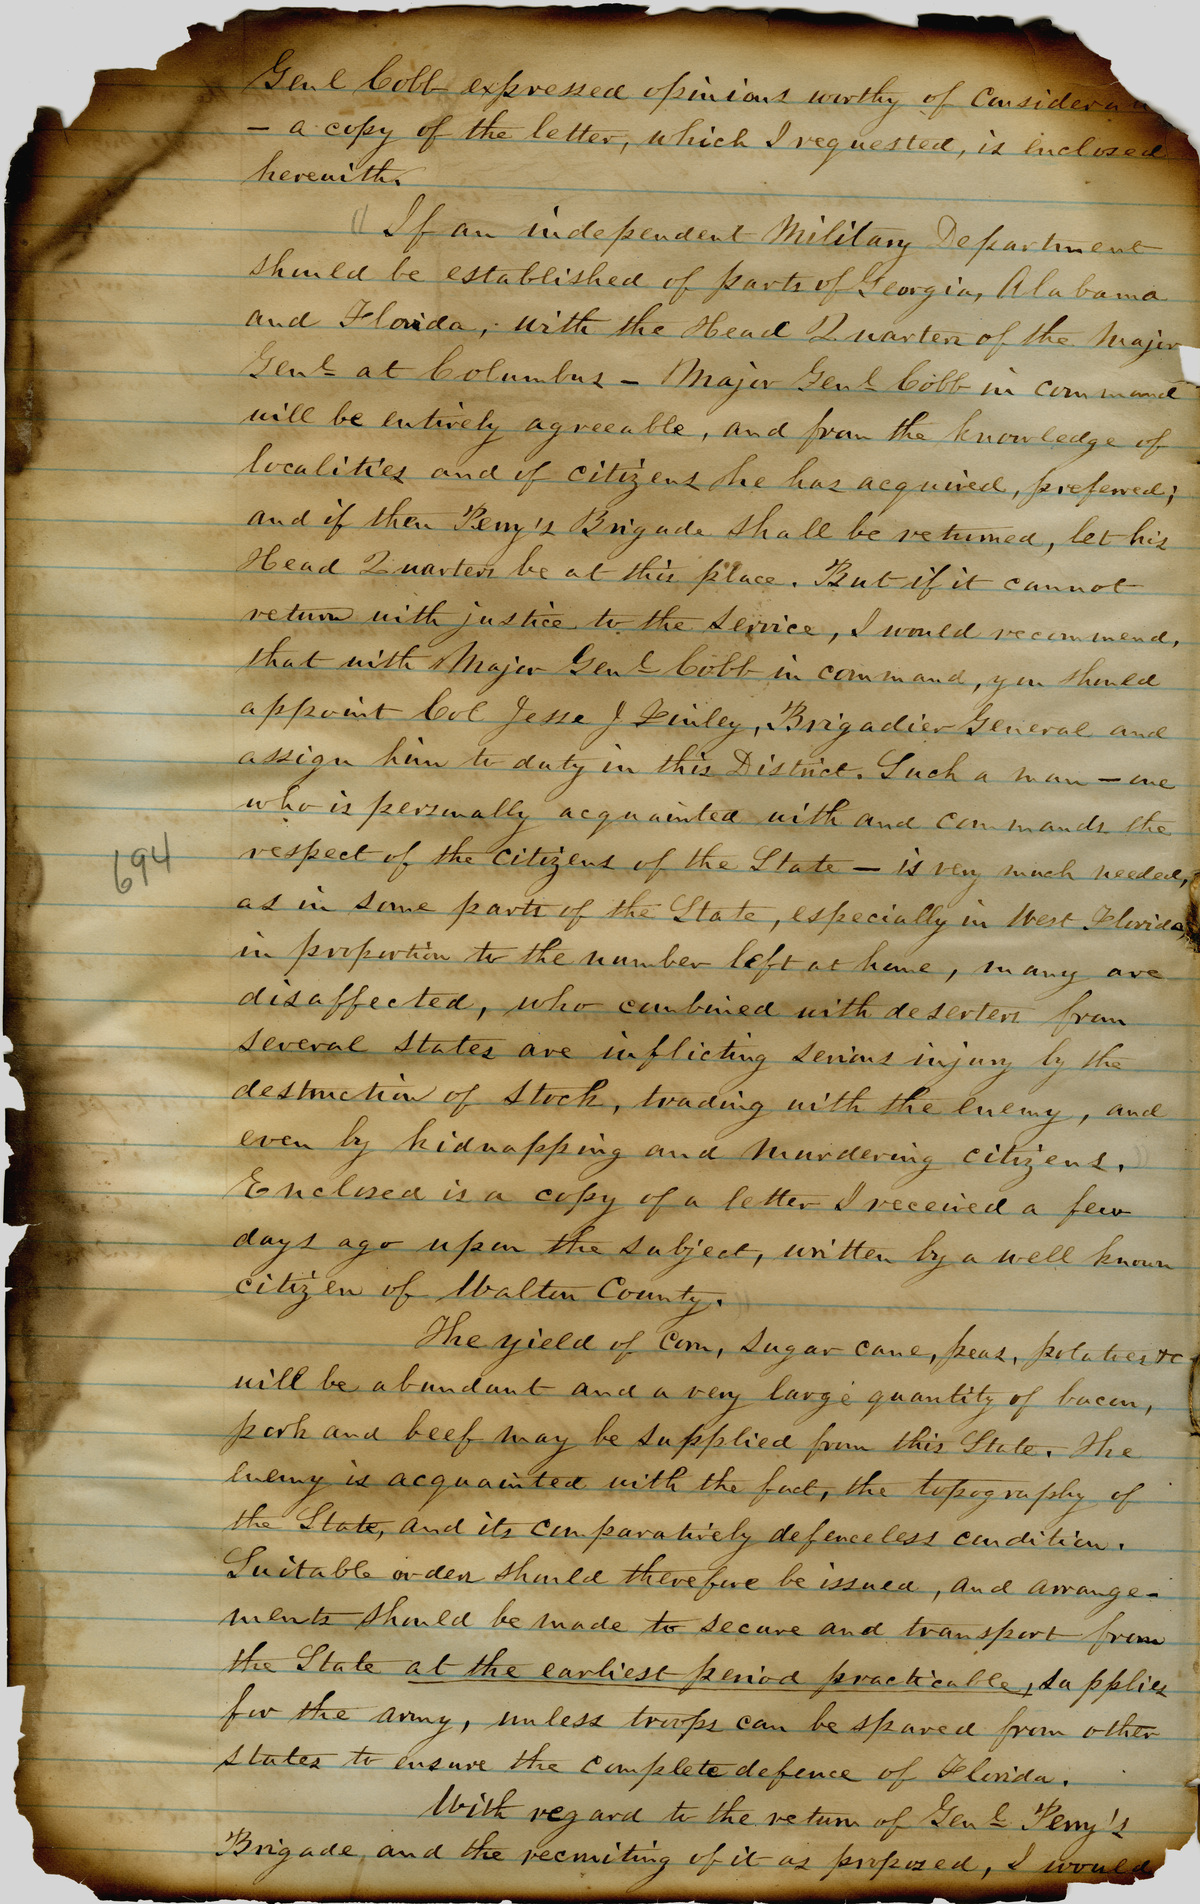 Genl Cobb expressed opinions worthy of Considera
— a copy of the letter, which I requested, is enclosed
herewith.
If an independent Military Department
should be established of parts of Georgia, Alabama
and Florida, with the Head Quarters of the Major
Genl at Columbus — Major Genl Cobb in command
will be entirely agreeable, and from the knowledge of
localities and of citizens he has acquired, preferred;
and if then Perry's Brigade shall be returned, let his
Head Quarters be at this place. But if it cannot
return with justice to the service, I would recommend,
that with Major Genl Cobb in command, you should
appoint Col Jesse J Finley, Brigadier General and
assign him to duty in this District. Such a man — one
who is personally acquainted with and commands the
respect of the citizens of the State — is very much needed,
as in some parts of the State, especially in West Florida,
in proportion to the number left at home, many are
disaffected, who combined with deserters from
several States are inflicting serious injury by the
destruction of stock, trading with the enemy, and
even by kidnapping and murdering citizens.
Enclosed is a copy of a letter I received a few
days ago upon the subject, written by a well known
citizen of Walton County.
The yield of corn, sugar cane, peas, potatoes &c
will be abundant and a very large quantity of bacon,
pork and beef may be supplied from this State. The
enemy is acquainted with the fact, the topography of
the State, and its comparatively defenceless condition.
Suitable orders should therefore be issued, and arrange-
ments should be made to secure and transport from
the State at the earliest period practicable, supplies
for the army, unless troops can be spared from other
states to ensure the complete defence of Florida.
With regard to the return of Genl Perry's
Brigade and the recruiting of it as proposed, I would
694